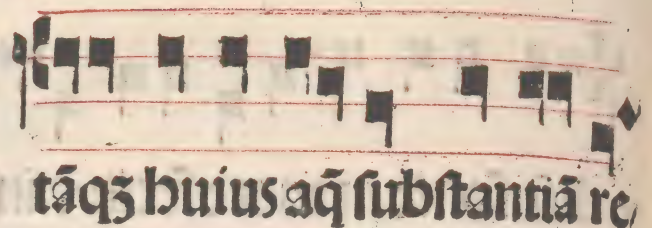 tãqꝫ huius aq̃ ſubſtantiã re/